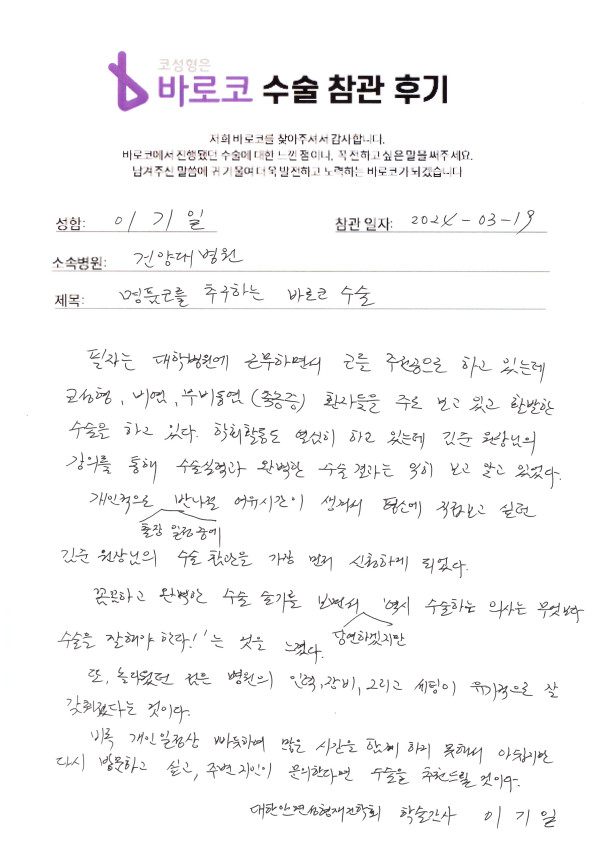 코성형은
바로코 수술 참관 후기
저희 바로코를 찾아주셔서 감사합니다.
바로코에서 진행됐던 수술에 대한 느낀 점이나, 꼭 전하고 싶은 말을 써주세요.
남겨주신 말씀에 귀 기울여 더욱 발전하고 노력하는 바로코가 되겠습니다
성함: 이 기 일 참관 일자: 2024-03-19
소속병원: 건양대병원
제목: 명품코를 추구하는 바로코 수술
필자는 대학병원에 근무하면서 코를 주전공으로 하고 있는데
코성형, 비염, 부비동염 (축농증) 환자들을 주로 보고 있고 활발한
수술을 하고 있다. 학회활동도 열심히 하고 있는데 김준 원장님의
강의를 통해 수술실력과 완벽한 수술 결과는 익히 보고 알고 있었다.
개인적으로 반나절 여유시간이 생겨서 평소에 직접보고 싶던
출장 일정 중에
김준 원장님의 수술 참관을 가장 먼저 신청하게 되었다.
꼼꼼하고 완벽한 수술 술기를 보면서 '역시 수술하는 의사는 무엇보다
당연하겠지만
수술을 잘해야 한다!' 는 것을 느꼈다.
또, 놀라웠던 점은 병원의 인력, 장비, 그리고 세팅이 유기적으로 잘
갖춰졌다는 것이다.
비록 개인일정상 빠듯하여 많은 시간을 함께 하지 못해서 아쉽지만
다시 방문하고 싶고, 주변 지인이 문의한다면 수술을 추천드릴 것이다.
대한안면성형재건학회 학술간사 이 기 일